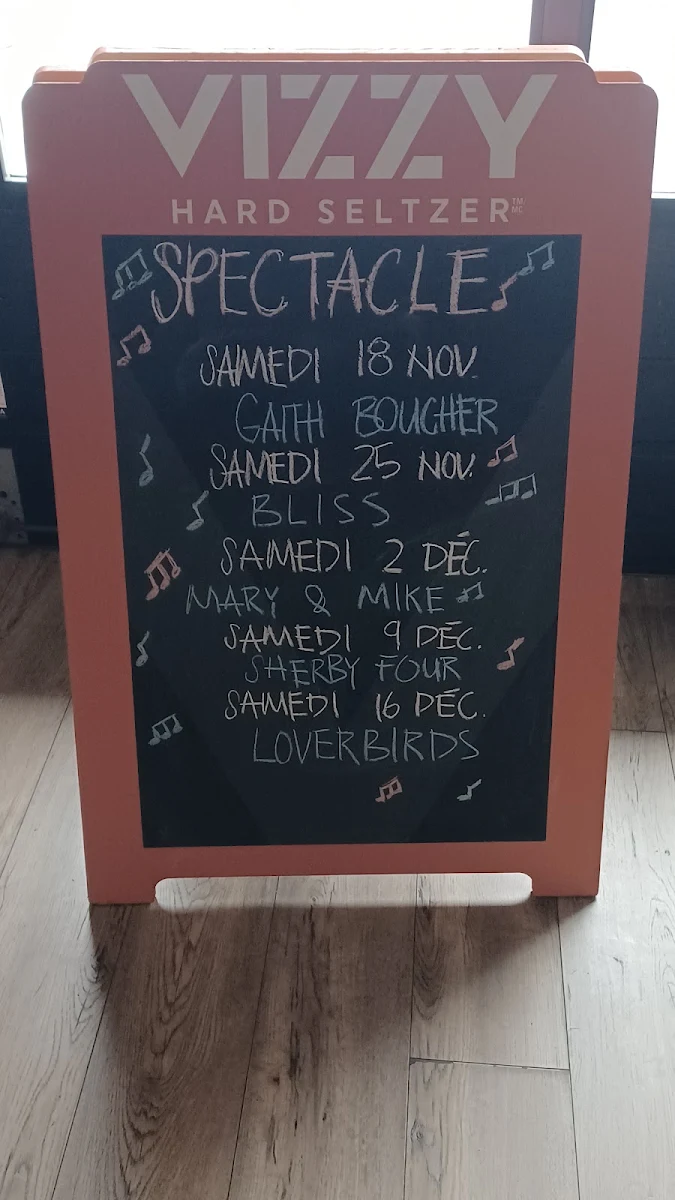 VIZZY
HARD SELTZER TM/MC
SPECTACLE
SAMEDI 18 NOV.
GAITH BOUCHER
SAMEDI 25 NOV.
BLISS
SAMEDI 2 DÉC.
MARY & MIKE
SAMEDI 9 DÉC.
SHERBY FOUR
SAMEDI 16 DÉC.
LOVERBIRDS